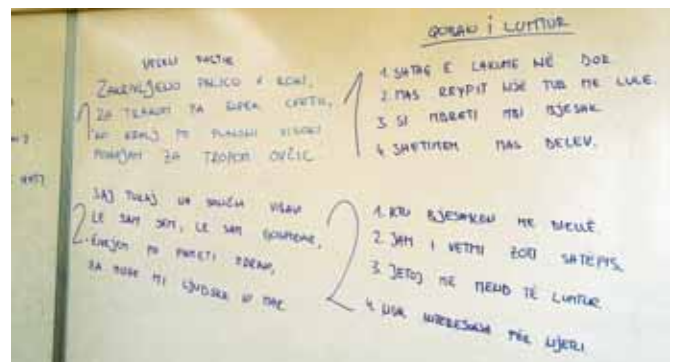 VESELI PASTIR
ZAKRIVLJENO PALICO V ROKI,
ZA TRAKOM PA ŠOPEK CVETIC,
KO KRALJ PO PLANINI VISOKI
POHAJAM ZA TROPOM OVČIC
1
SAJ TUKAJ NA SONČNI VIŠAVI
LE SAM SEM, LE SAM GOSPODAR,
PO PAMETI ZDRAVI,
ZA MUHE MI LJUDSKE NI MAR
2
QOBAN I LUMTUR
1. SHTAG E LAKUME NË DOR
2. MAS RRYPIT NJË TUB ME LULE.
3 SI MBRETI MBI BJESHK
4. SHETITEM MAS DELEV.
1
1. KTU BJESHKEN ME DIELLË
2. JAM I VETMI ZOTI SHTËPIS,
3. JETOJ ME MEND TË LUMTUR
4. NUK INTERESOHA PËR NJERI
2